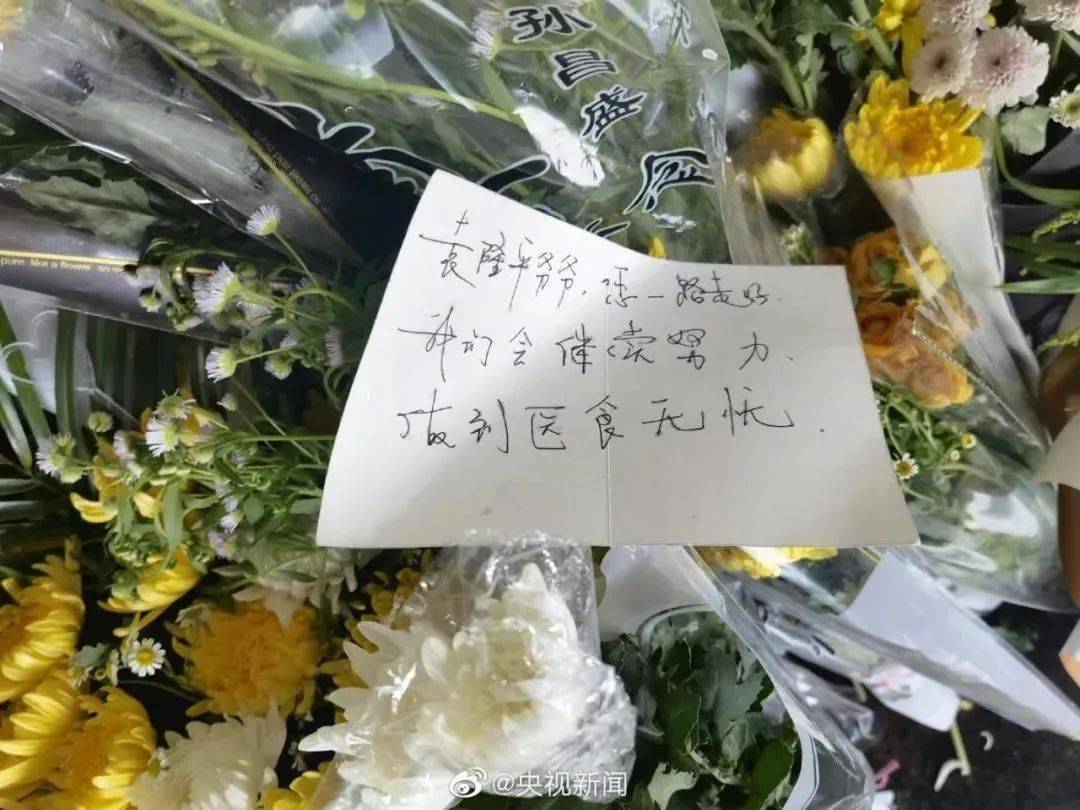 孙昌盛
袁隆平爷爷，您一路走好.
我们会继续努力.
做到医食无忧.
pure like a flower
@央视新闻